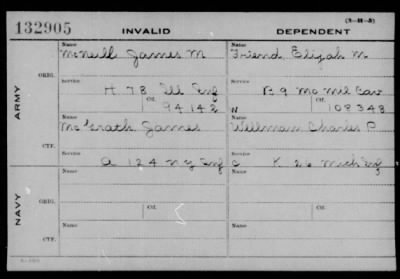 (3-H-5)
132905 INVALID DEPENDENT
Name Name
McNeill James M Friend, Elijah M.
ORIG.
Service Service
H 78 Ill Inf B 9 Mo Mil Cav
Ctf. Ctf.
94142 N 108348
ARMY
Name Name
McGrath James Wellman Charles P
CTF.
Service Service
A 124 N Y Inf C K 26 Mich Inf
NAVY
Name Name
ORIG. Ctf. Ctf.
Name Name
CTF.